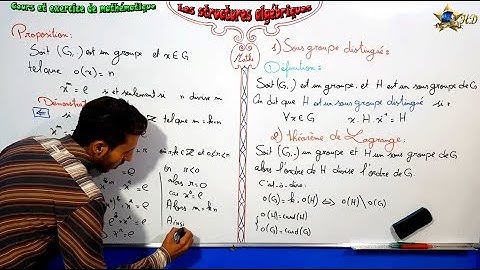 Cours et exercice de mathématique
Les structures algébriques
Maths
HD
Proposition:
Soit (G, .) est un groupe et x ∈ G
tel que o(x) = n
xᵐ = e si et seulement si n divise m
Démonstrat
⇐ si
ℤ tel que m = kn
m, k ∈ ℤ et 0 ≤ r < n
or r < n
alors r = 0
car x⁰ = e
Alors m = kn
Ainsi
1) Sous groupe distingué:
Définition:
Soit (G, .) un groupe et H est un sous groupe de G
On dit que H est un sous groupe distingué si:
∀x ∈ G x . H . x⁻¹ = H
2) théorème de Lagrange:
Soit (G, .) un groupe et H un sous groupe de G
alors l'ordre de H divise l'ordre de G.
C'est-à-dire:
o(G) = k . o(H) ⇔ o(H) \ o(G)
o(H) = card(H)
o(G) = card(G)